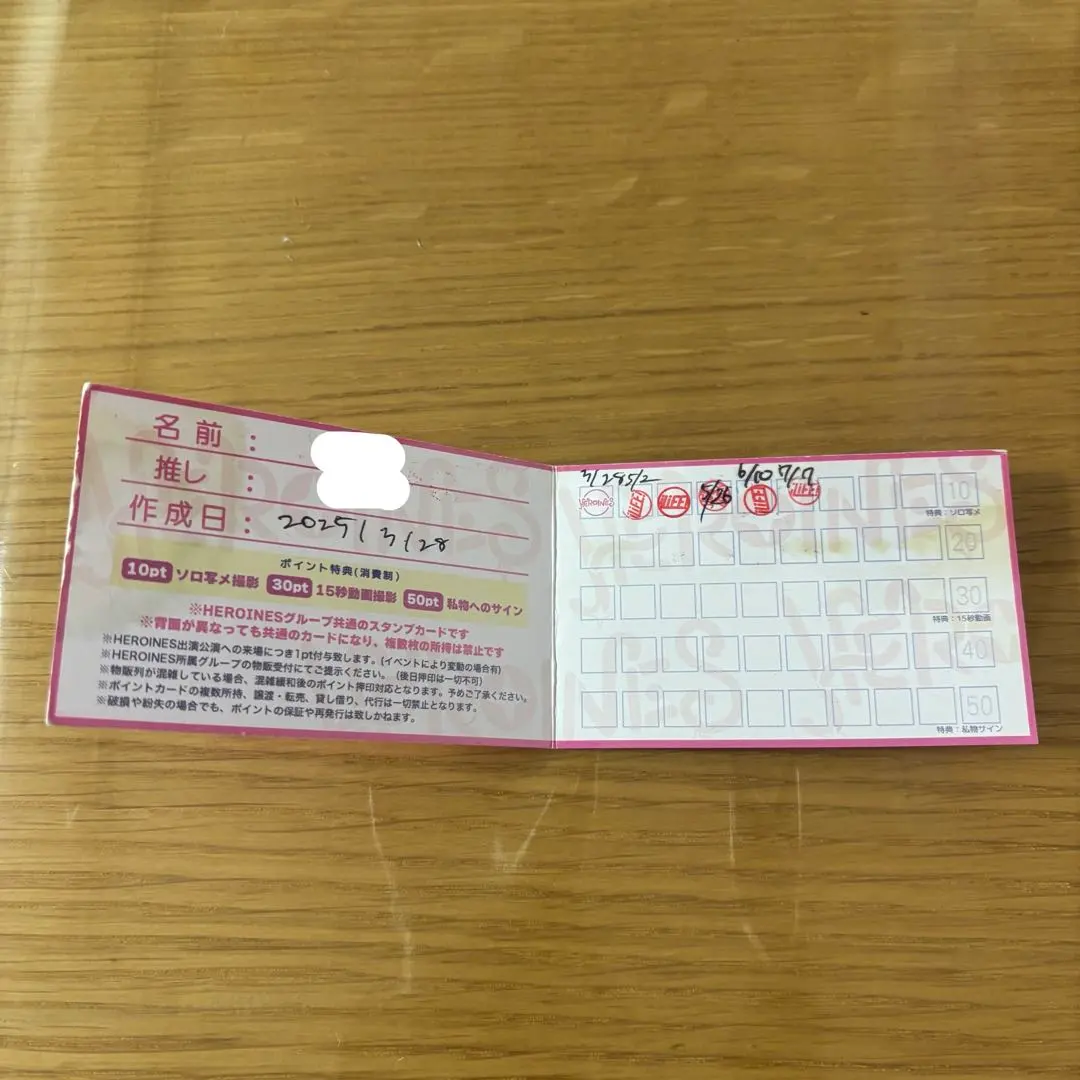 名前：
推し：
作成日：2025/3/28
ポイント特典(消費制)
10pt ソロ写メ撮影 30pt 15秒動画撮影 50pt 私物へのサイン
※HEROINESグループ共通のスタンプカードです
※背面が異なっても共通のカードになり、複数枚の所持は禁止です
※HEROINES出演公演への来場につき1pt付与致します。(イベントにより変動の場合有)
※HEROINES所属グループの物販受付にてご提示ください。(後日押印は一切不可)
※物販列が混雑している場合、混雑緩和後のポイント押印対応となります。予めご了承ください。
※ポイントカードの複数所持、譲渡・転売、貸し借り、代行は一切禁止となります。
※破損や紛失の場合でも、ポイントの保証や再発行は致しかねます。
3/28 5/2 6/10 7/17
HEROINES 5/26 10
特典：ソロ写メ
20
30
特典：15秒動画
40
50
特典：私物サイン